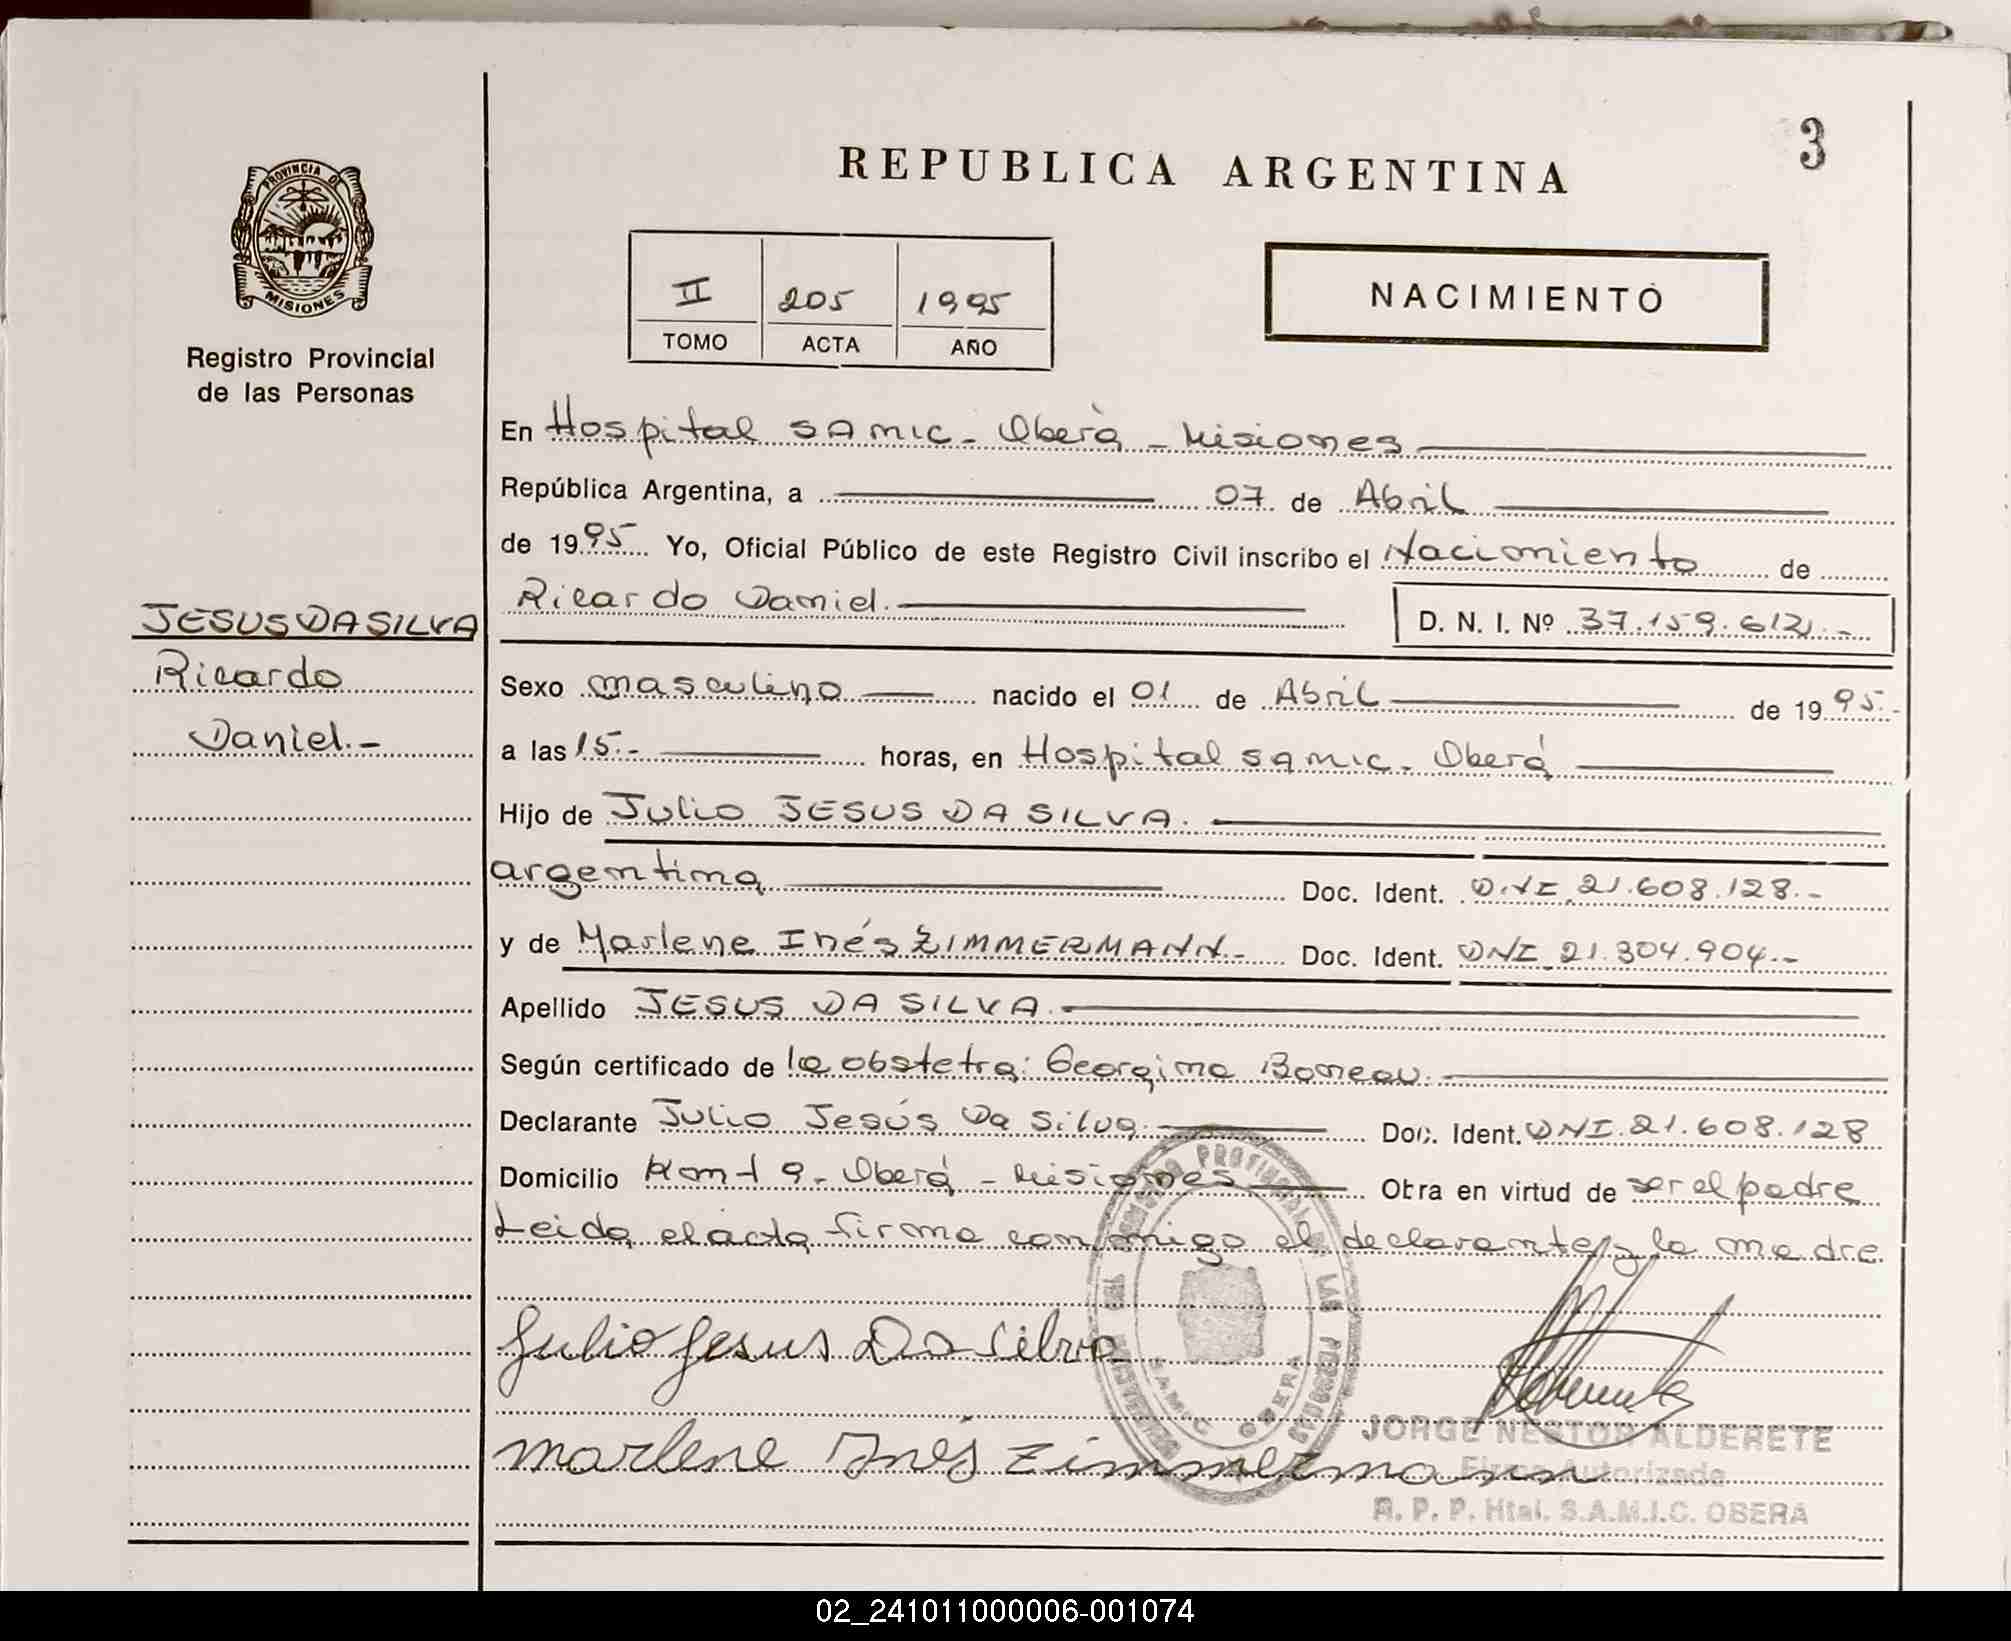 3
REPUBLICA ARGENTINA
PROVINCIA DE
MISIONES
Registro Provincial
de las Personas
II 205 1995
TOMO ACTA AÑO
NACIMIENTO
En Hospital SAMIC - Oberà - Misiones
República Argentina, a 07 de Abril
de 1995 Yo, Oficial Público de este Registro Civil inscribo el Nacimiento de
Ricardo Daniel.
D. N. I. Nº 37.159.612.-
JESUS DA SILVA
Ricardo
Daniel.-
Sexo masculino nacido el 01 de Abril de 1995.-
a las 15.- horas, en Hospital SAMIC. Oberá
Hijo de Julio JESUS DA SILVA.
argentina Doc. Ident. DNI 21.608.128.-
y de Marlene Inés ZIMMERMANN.- Doc. Ident. DNI 21.304.904.-
Apellido JESUS DA SILVA.
Según certificado de la obstetra: Georgina Boneau.
Declarante Julio Jesús Da Silva Doc. Ident. DNI 21.608.128
Domicilio Km 9 - Oberá - Misiones Obra en virtud de ser el padre
Leida el acta firma conmigo el declarante y la madre
Julio Jesus Da Silva
marlene Inés zimmermann
REGISTRO PROVINCIAL DE LAS PERSONAS
S.A.M.I.C. OBERA
JORGE NESTOR ALDERETE
Firma Autorizada
R. P. P. Htal. S.A.M.I.C. OBERA
02_241011000006-001074